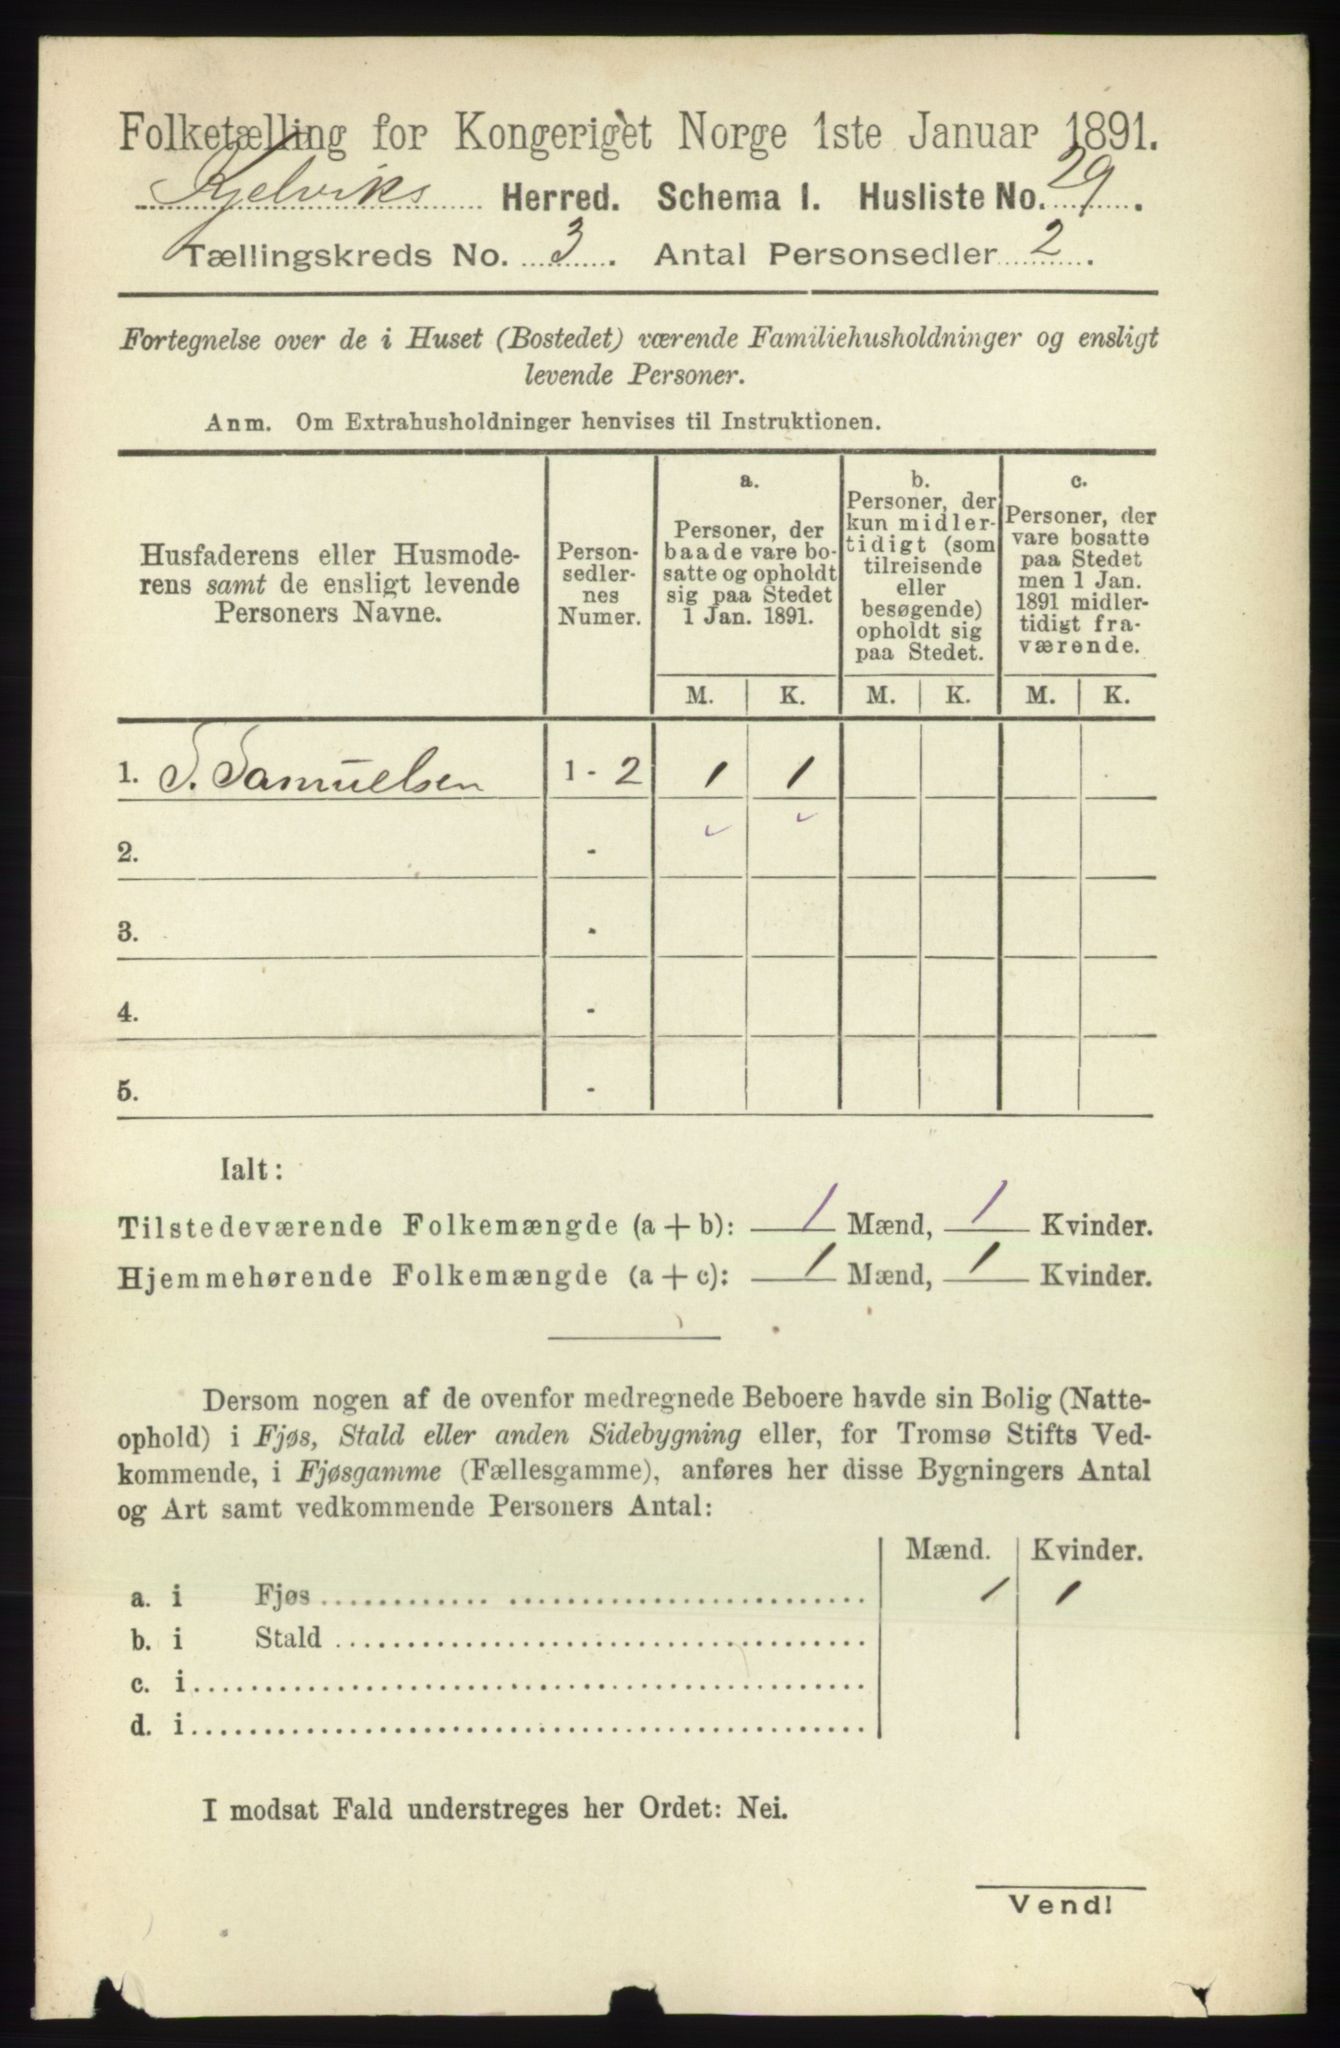 Folketælling for Kongeriget Norge 1ste Januar 1891.
Kjelviks Herred. Schema I. Husliste No. 29.
Tællingskreds No. 3. Antal Personsedler 2.
Fortegnelse over de i Huset (Bostedet) værende Familiehusholdninger og ensligt
levende Personer.
Anm. Om Extrahusholdninger henvises til Instruktionen.
Husfaderens eller Husmode-
rens samt de ensligt levende
Personers Navne.
Person-
sedler-
nes
Numer.
a.
Personer, der
baade vare bo-
satte og opholdt
sig paa Stedet
1 Jan. 1891.
b.
Personer, der
kun midler-
tidigt (som
tilreisende
eller
besøgende)
opholdt sig
paa Stedet.
c.
Personer, der
vare bosatte
paa Stedet
men 1 Jan.
1891 midler-
tidigt fra-
værende.
M. K. M. K. M. K.
1. S. Samuelsen 1 - 2 1 1
2. -
3. -
4. -
5. -
Ialt:
Tilstedeværende Folkemængde (a + b): 1 Mænd, 1 Kvinder.
Hjemmehørende Folkemængde (a + c): 1 Mænd, 1 Kvinder.
Dersom nogen af de ovenfor medregnede Beboere havde sin Bolig (Natte-
ophold) i Fjøs, Stald eller anden Sidebygning eller, for Tromsø Stifts Ved-
kommende, i Fjøsgamme (Fællesgamme), anføres her disse Bygningers Antal
og Art samt vedkommende Personers Antal:
Mænd. Kvinder.
a. i Fjøs 1 1
b. i Stald
c. i
d. i
I modsat Fald understreges her Ordet: Nei.
Vend!